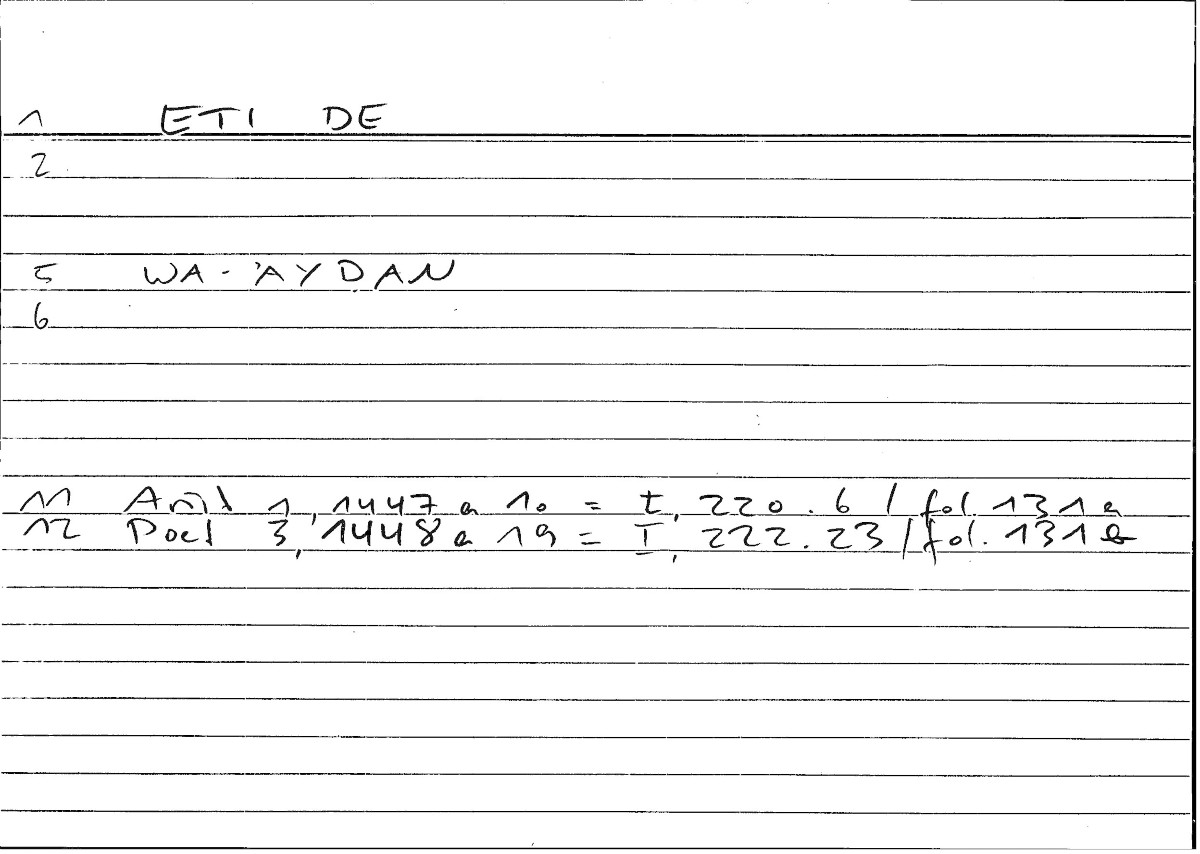 1 ETI DE
2
5 WA-'AYDAN
6
11 1,1447 a 10 = I, 220.6 / fol. 131a
12 Poet 3,1448 a 19 = I, 222.23 / fol. 131b